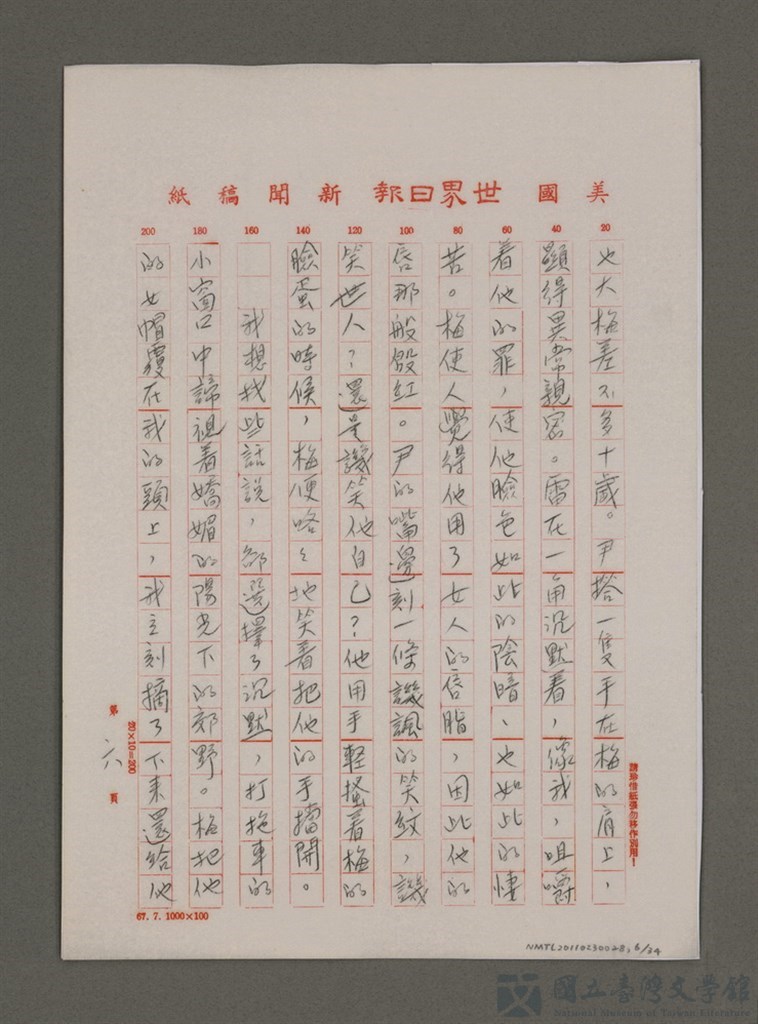 美國世界日報新聞稿紙
20
40
60
80
100
120
140
160
180
200
也大梅差不多十歲。尹搭一隻手在梅的肩上，
顯得異常親密。雷在一角沉默着，像我，咀嚼
着他的罪，使他臉色如此的陰暗、也如此的悽
苦。梅使人覺得他用了女人的唇脂，因此他的
唇那般殷紅。尹的嘴邊刻一條譏諷的笑紋，譏
笑世人？還是譏笑他自己？他用手輕搔着梅的
臉蛋的時候，梅便咯々地笑着把他的手擋開。
我想找些話說，卻選擇了沉默，打拖車的
小窗口中諦視着嬌媚的陽光下的郊野。梅把他
的女帽覆在我的頭上，我立刻摘了下來還給他
請珍惜紙張勿移作別用！
20×10=200
第六頁
67.7.1000×100
NMTL20110230028, 6/34
國立臺灣文學館
National Museum of Taiwan Literature